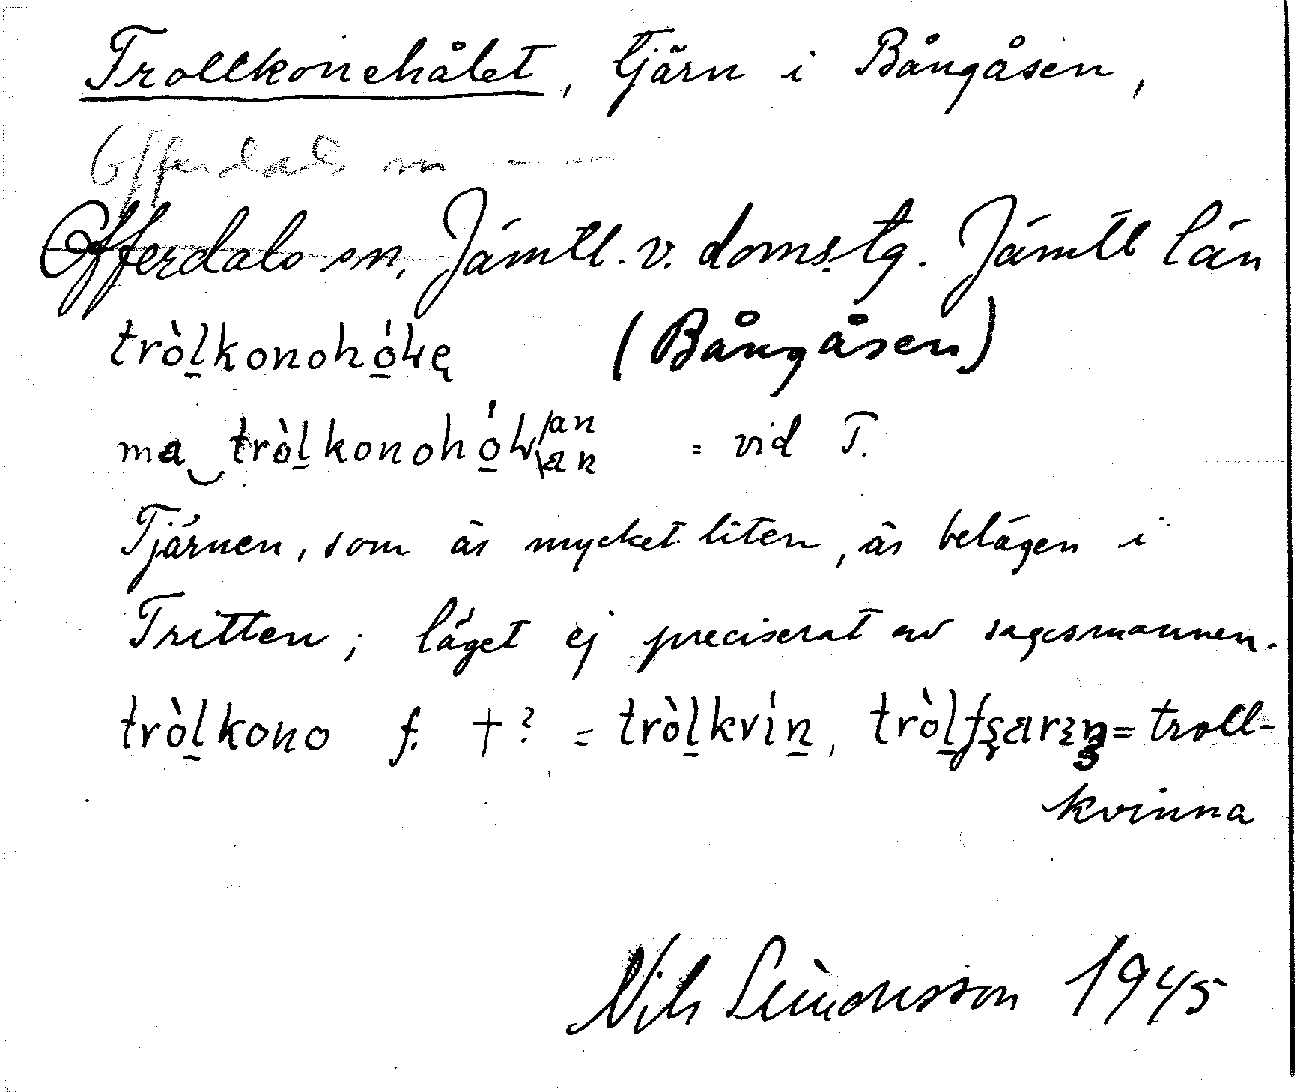 Trollkonehålet, tjärn i Bångåsen,
Offerdals sn
Offerdals sn. Jämtl. v. doms.tg. Jämtl län
tròl̠konohó̠ɬę (Bångåsen)
ma‿tròl̠konohó̠ɬ/an \an = vid T.
Tjärnen, som är mycket liten, är belägen i
Tritten; läget ej preciserat av sagesmannen.
tròl̠kono f. †? = tròl̠kvín̠, = troll-
kvinna
Nils Simonsson 1945